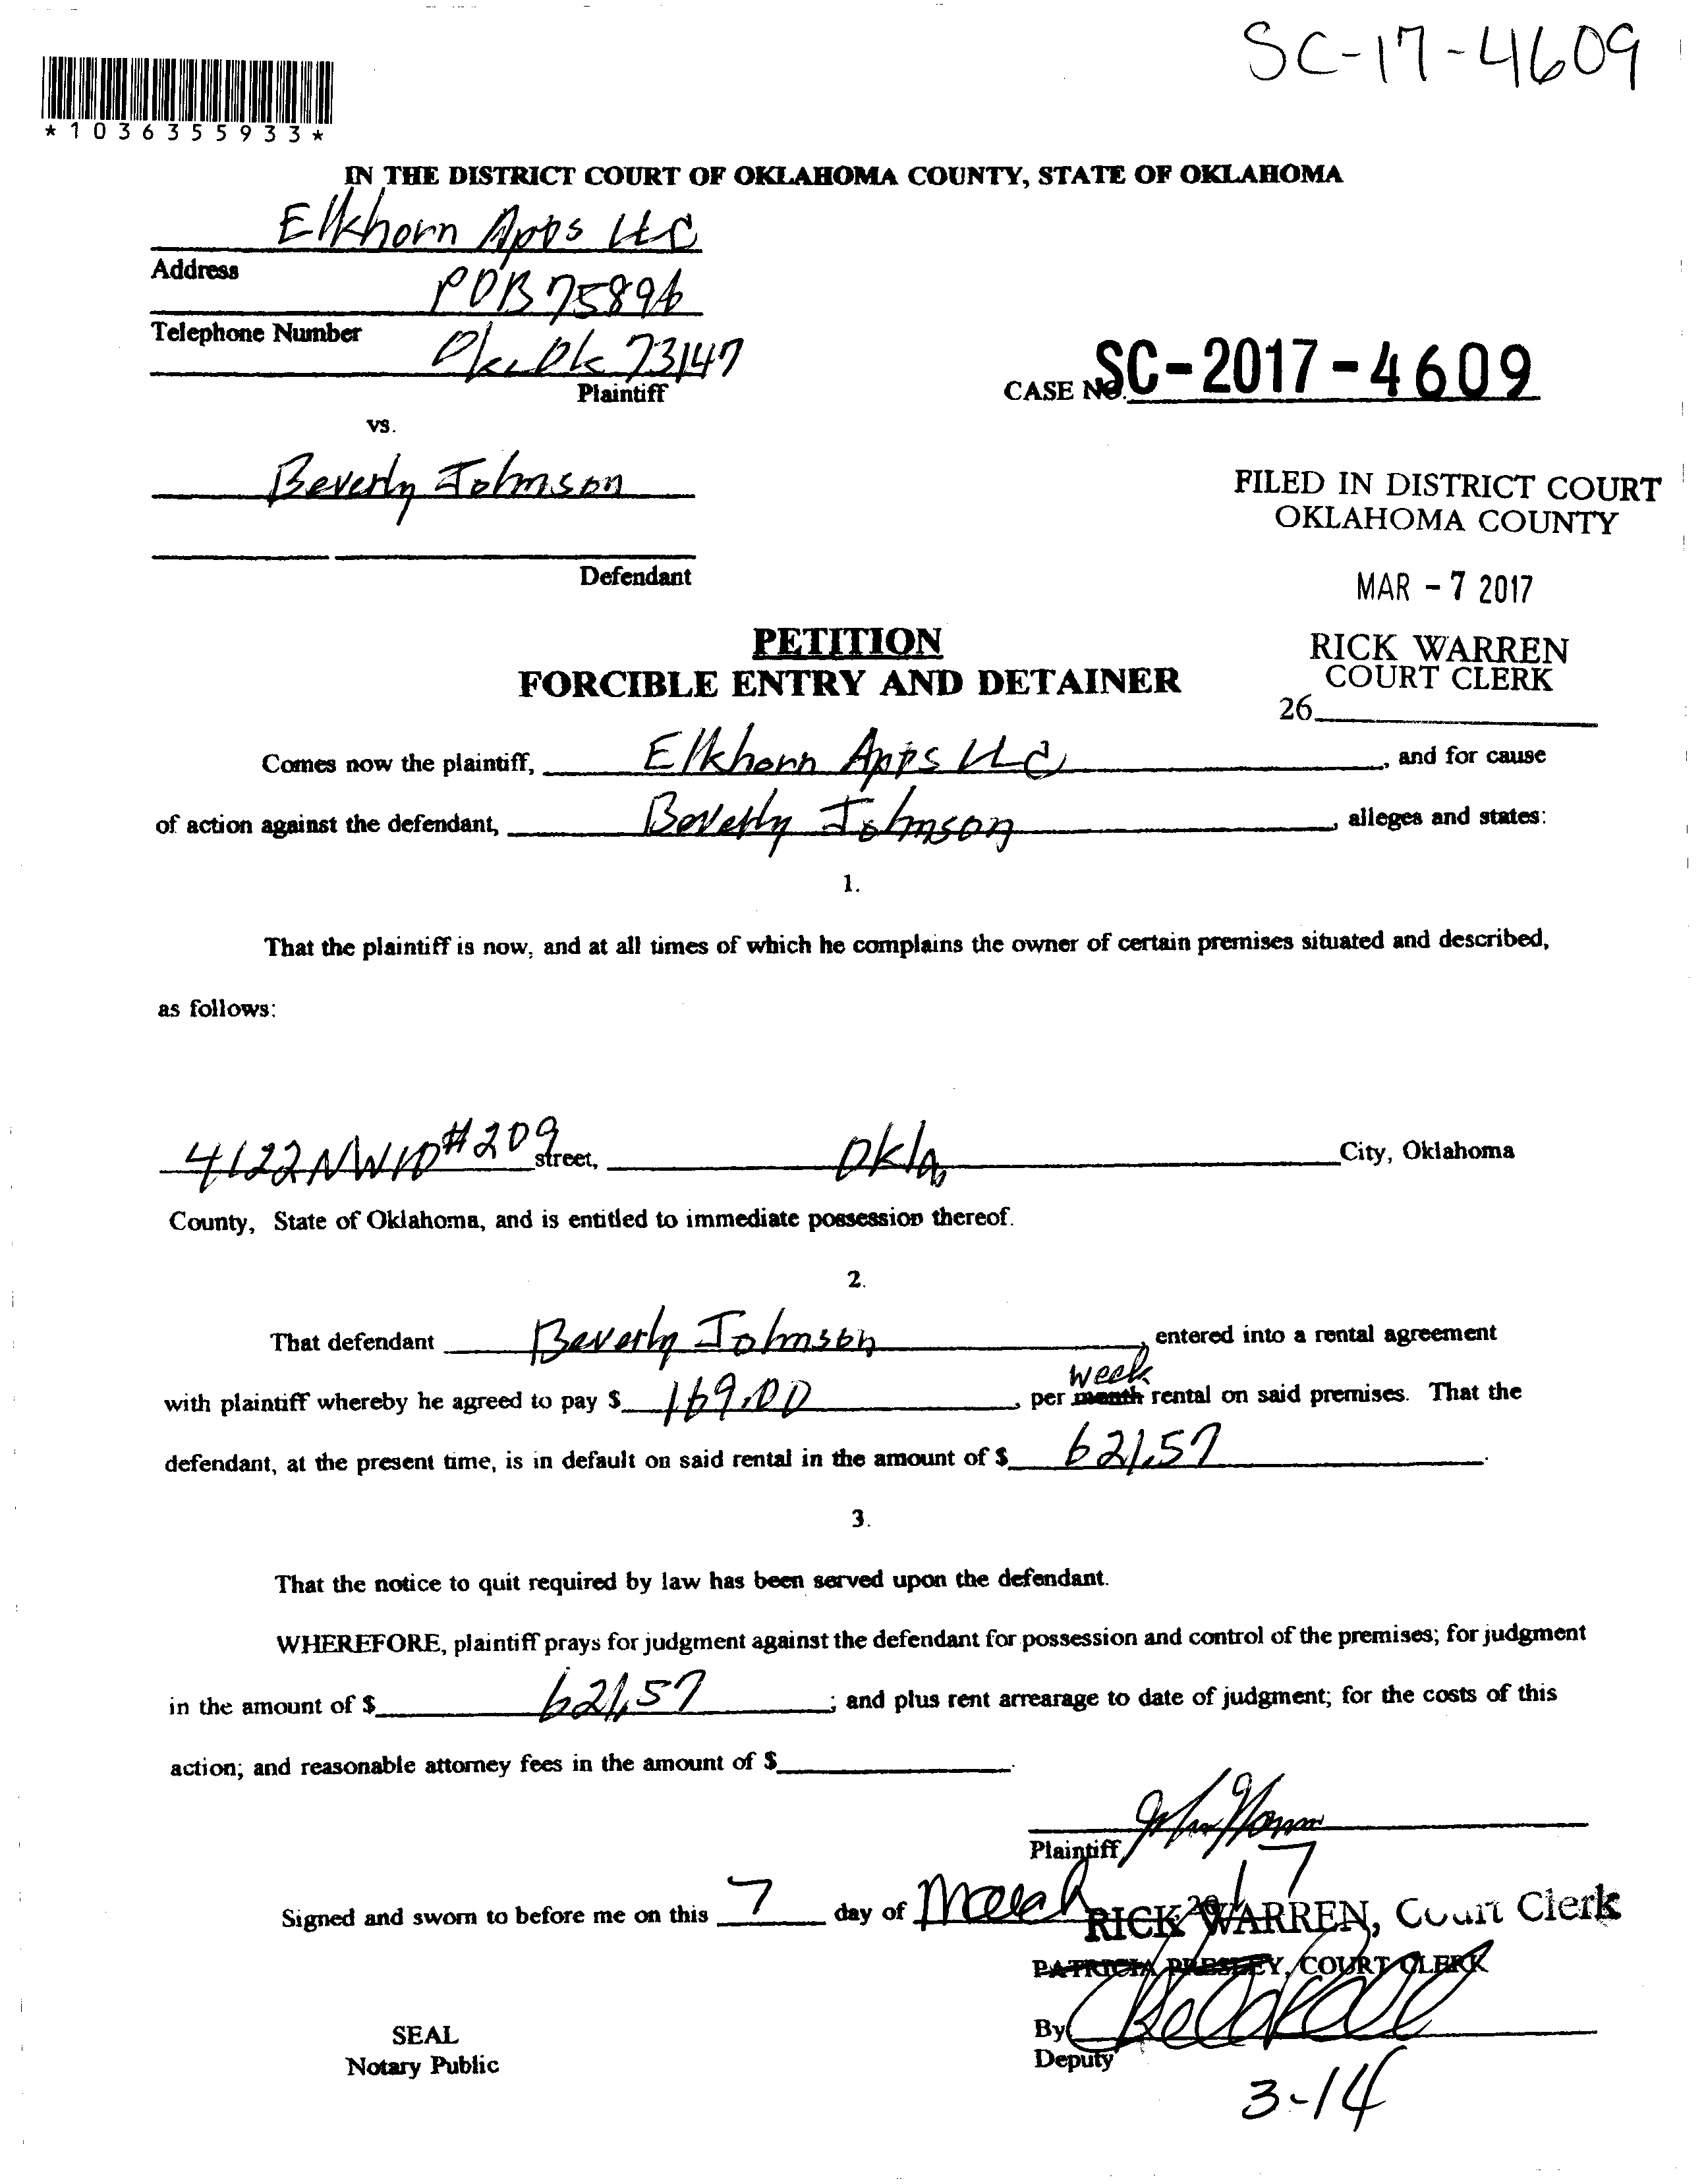 SC-17-4609
*1036355933*
IN THE DISTRICT COURT OF OKLAHOMA COUNTY, STATE OF OKLAHOMA
Elkhorn Apts LLC
Address
POB 75896
Telephone Number
Okc Ok 73147
Plaintiff
CASE NO. SC-2017-4609
vs.
Beverly Johnson
FILED IN DISTRICT COURT
OKLAHOMA COUNTY
Defendant
MAR - 7 2017
PETITION
RICK WARREN
COURT CLERK
FORCIBLE ENTRY AND DETAINER
26
Comes now the plaintiff, Elkhorn Apts LLC, and for cause
of action against the defendant, Beverly Johnson, alleges and states:
1.
That the plaintiff is now, and at all times of which he complains the owner of certain premises situated and described,
as follows:
4122 NW10 #209 street, Okla City, Oklahoma
County, State of Oklahoma, and is entitled to immediate possession thereof.
2.
That defendant Beverly Johnson, entered into a rental agreement
week
with plaintiff whereby he agreed to pay $ 169.00, per month rental on said premises. That the
defendant, at the present time, is in default on said rental in the amount of $ 621.57.
3.
That the notice to quit required by law has been served upon the defendant.
WHEREFORE, plaintiff prays for judgment against the defendant for possession and control of the premises; for judgment
in the amount of $ 621.57; and plus rent arrearage to date of judgment; for the costs of this
action; and reasonable attorney fees in the amount of $
Plaintiff
Signed and sworn to before me on this 7 day of March 20 17
RICK WARREN, Court Clerk
PATRICIA PRESLEY, COURT CLERK
By
Deputy
SEAL
Notary Public
3-14